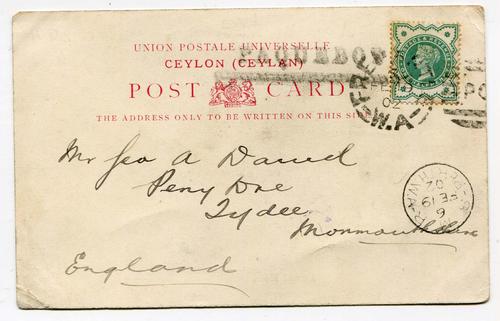 UNION POSTALE UNIVERSELLE
CEYLON (CEYLAN)
PAQUEBOT
POST CARD
THE ADDRESS ONLY TO BE WRITTEN ON THIS SIDE
FRE
FE
02
W.A
PO
Mr Geo A David
Peny Dre
Tydee
Monmouthshire
England
6
FE 19
02
PERTH.W.A